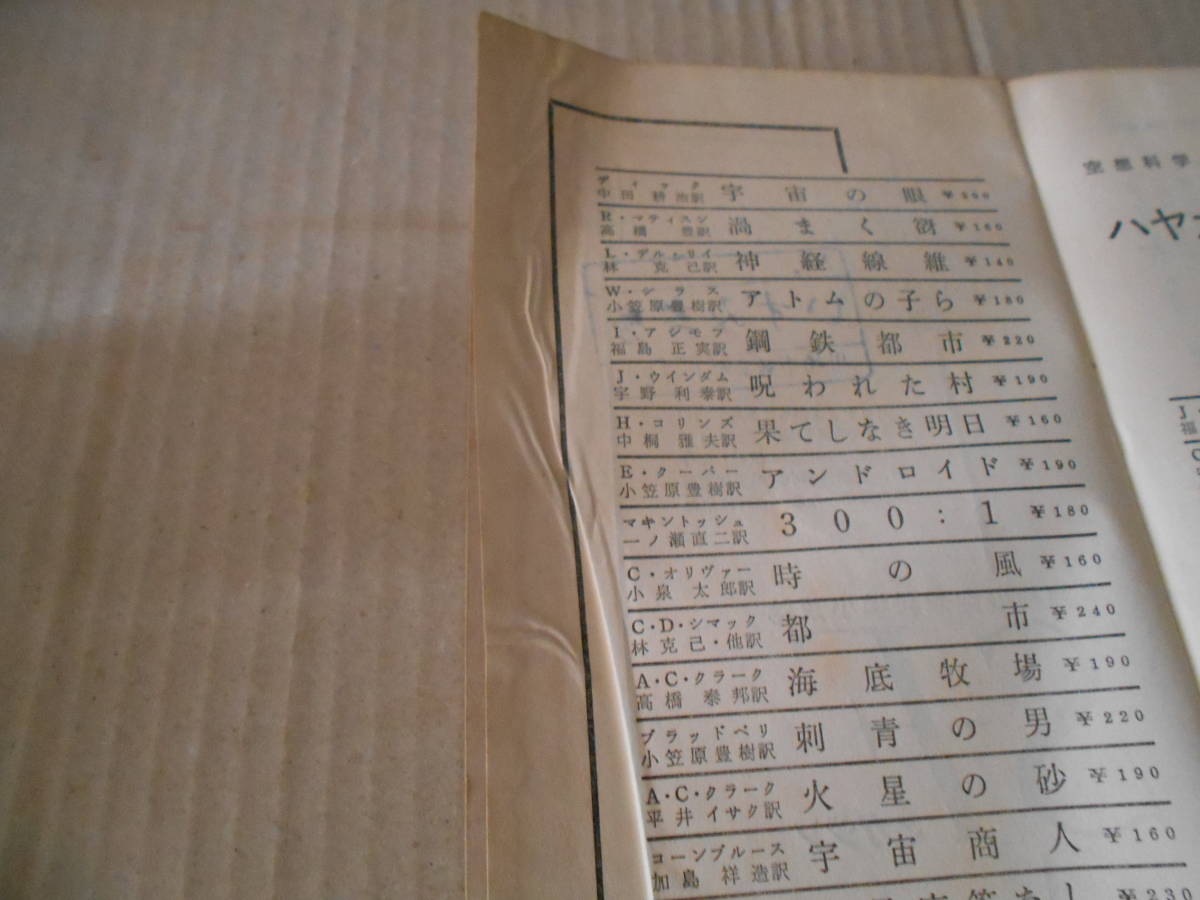 ディック
中田耕治訳 宇宙の眼 ¥200
R・マティスン
高橋豊訳 渦まく谺 ¥160
L・デル・リイ
林克己訳 神経線維 ¥140
W・シラス
小笠原豊樹訳 アトムの子ら ¥180
I・アシモフ
福島正実訳 鋼鉄都市 ¥220
J・ウインダム
宇野利泰訳 呪われた村 ¥190
H・コリンズ
中桐雅夫訳 果てしなき明日 ¥160
E・クーパー
小笠原豊樹訳 アンドロイド ¥190
マキントッシュ
一ノ瀬直二訳 300:1 ¥180
C・オリヴァー
小泉太郎訳 時の風 ¥160
C・D・シマック
林克己・他訳 都市 ¥240
A・C・クラーク
高橋泰邦訳 海底牧場 ¥190
ブラッドベリ
小笠原豊樹訳 刺青の男 ¥220
A・C・クラーク
平井イサク訳 火星の砂 ¥190
コーンブルース
加島祥造訳 宇宙商人 ¥160
¥230
空想科学
ハヤカ
J
福
C